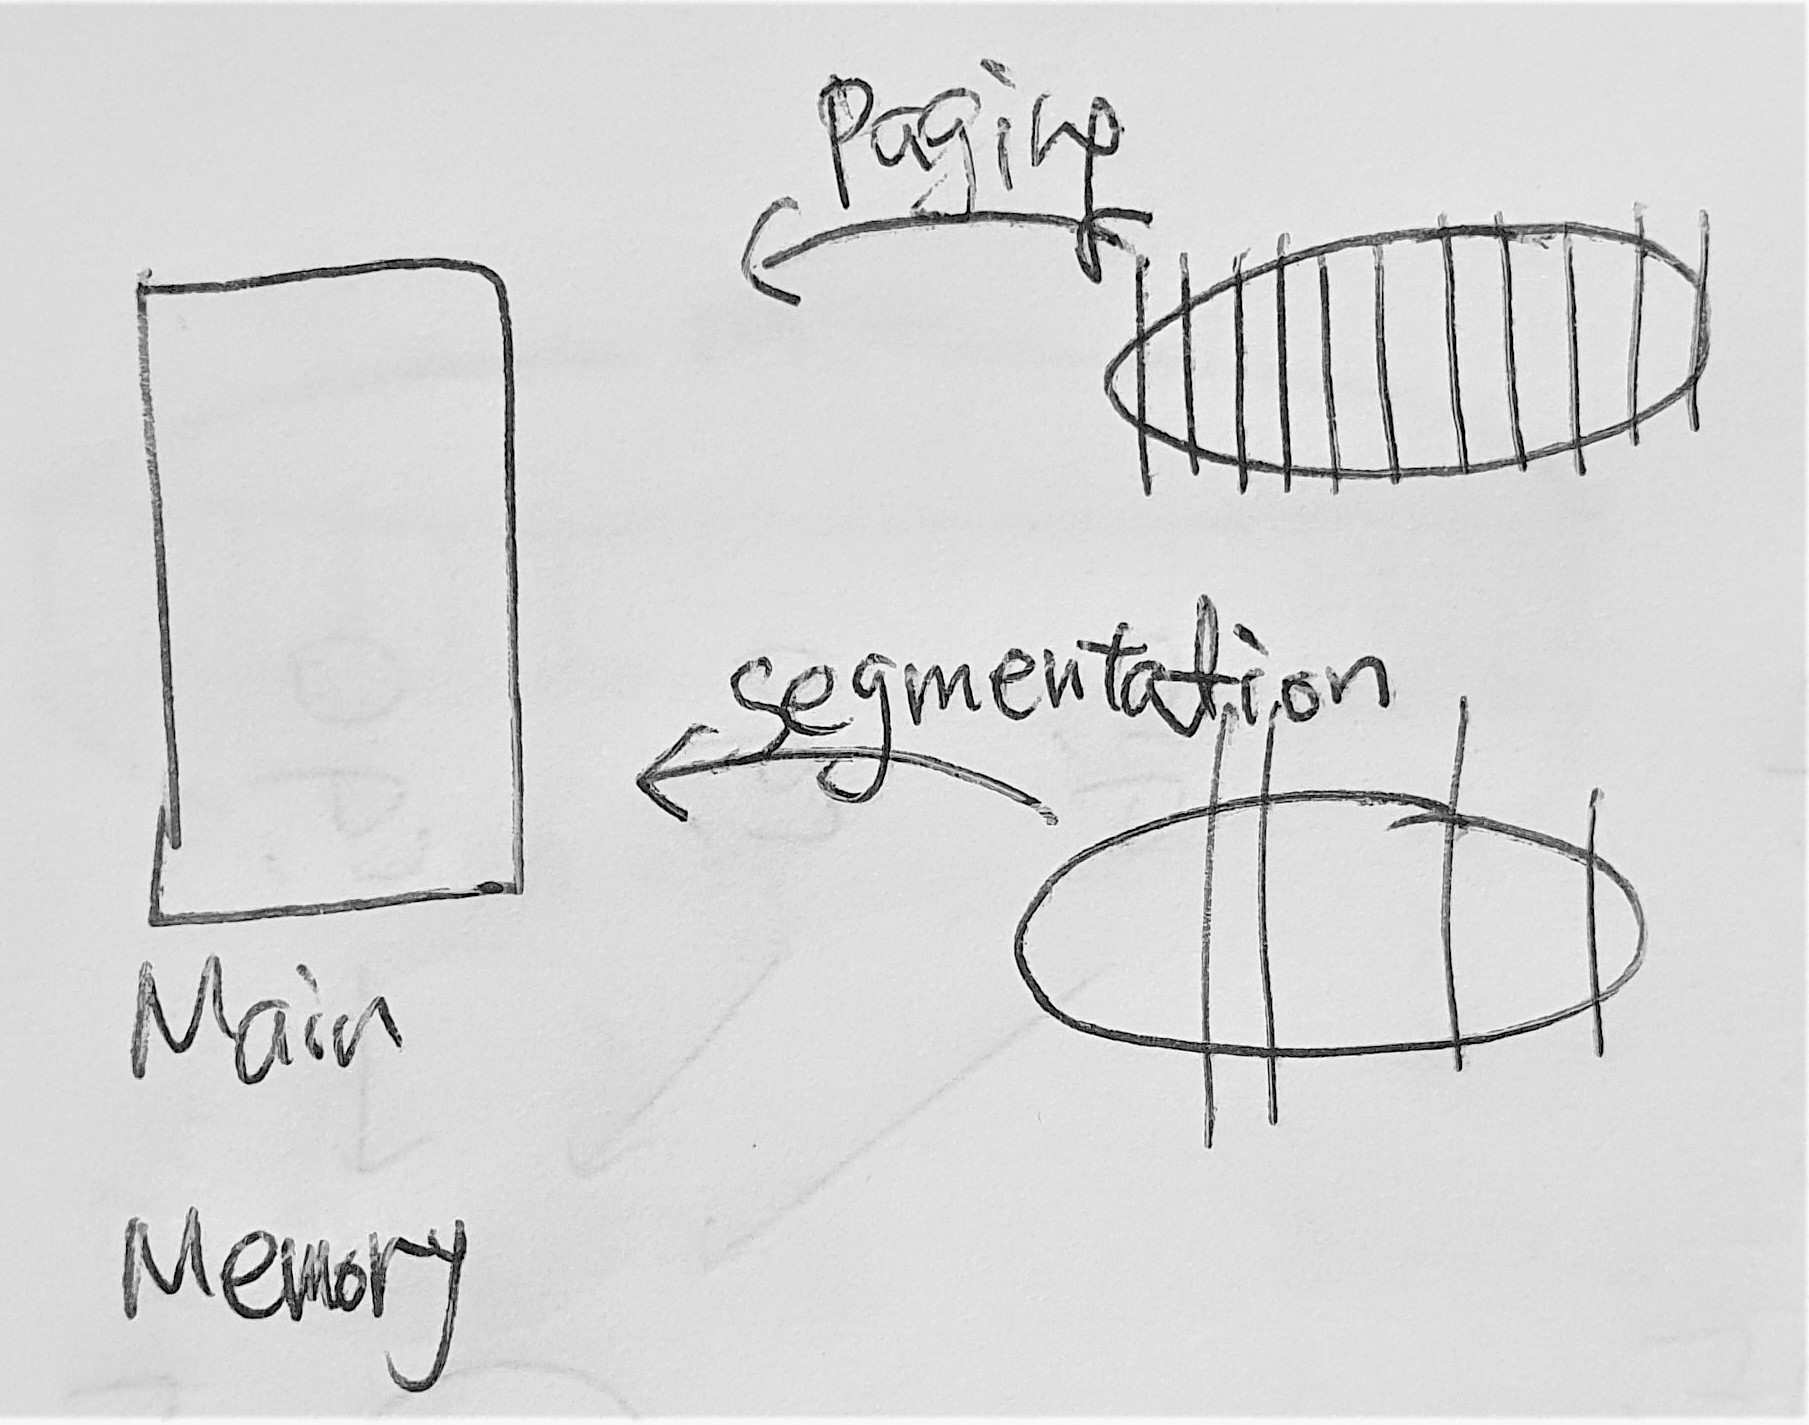 Paging
segmentation
Main
Memory